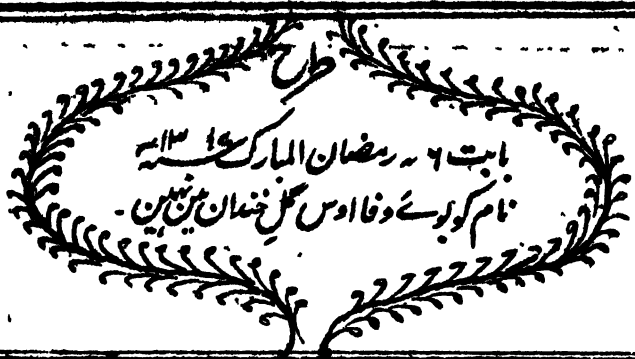 طرح
بابت ۶ ۔ رمضان المبارک ۱۳۱۵ ھ
نام کو بوے وفا اوس گل خندان مین نہین ۔